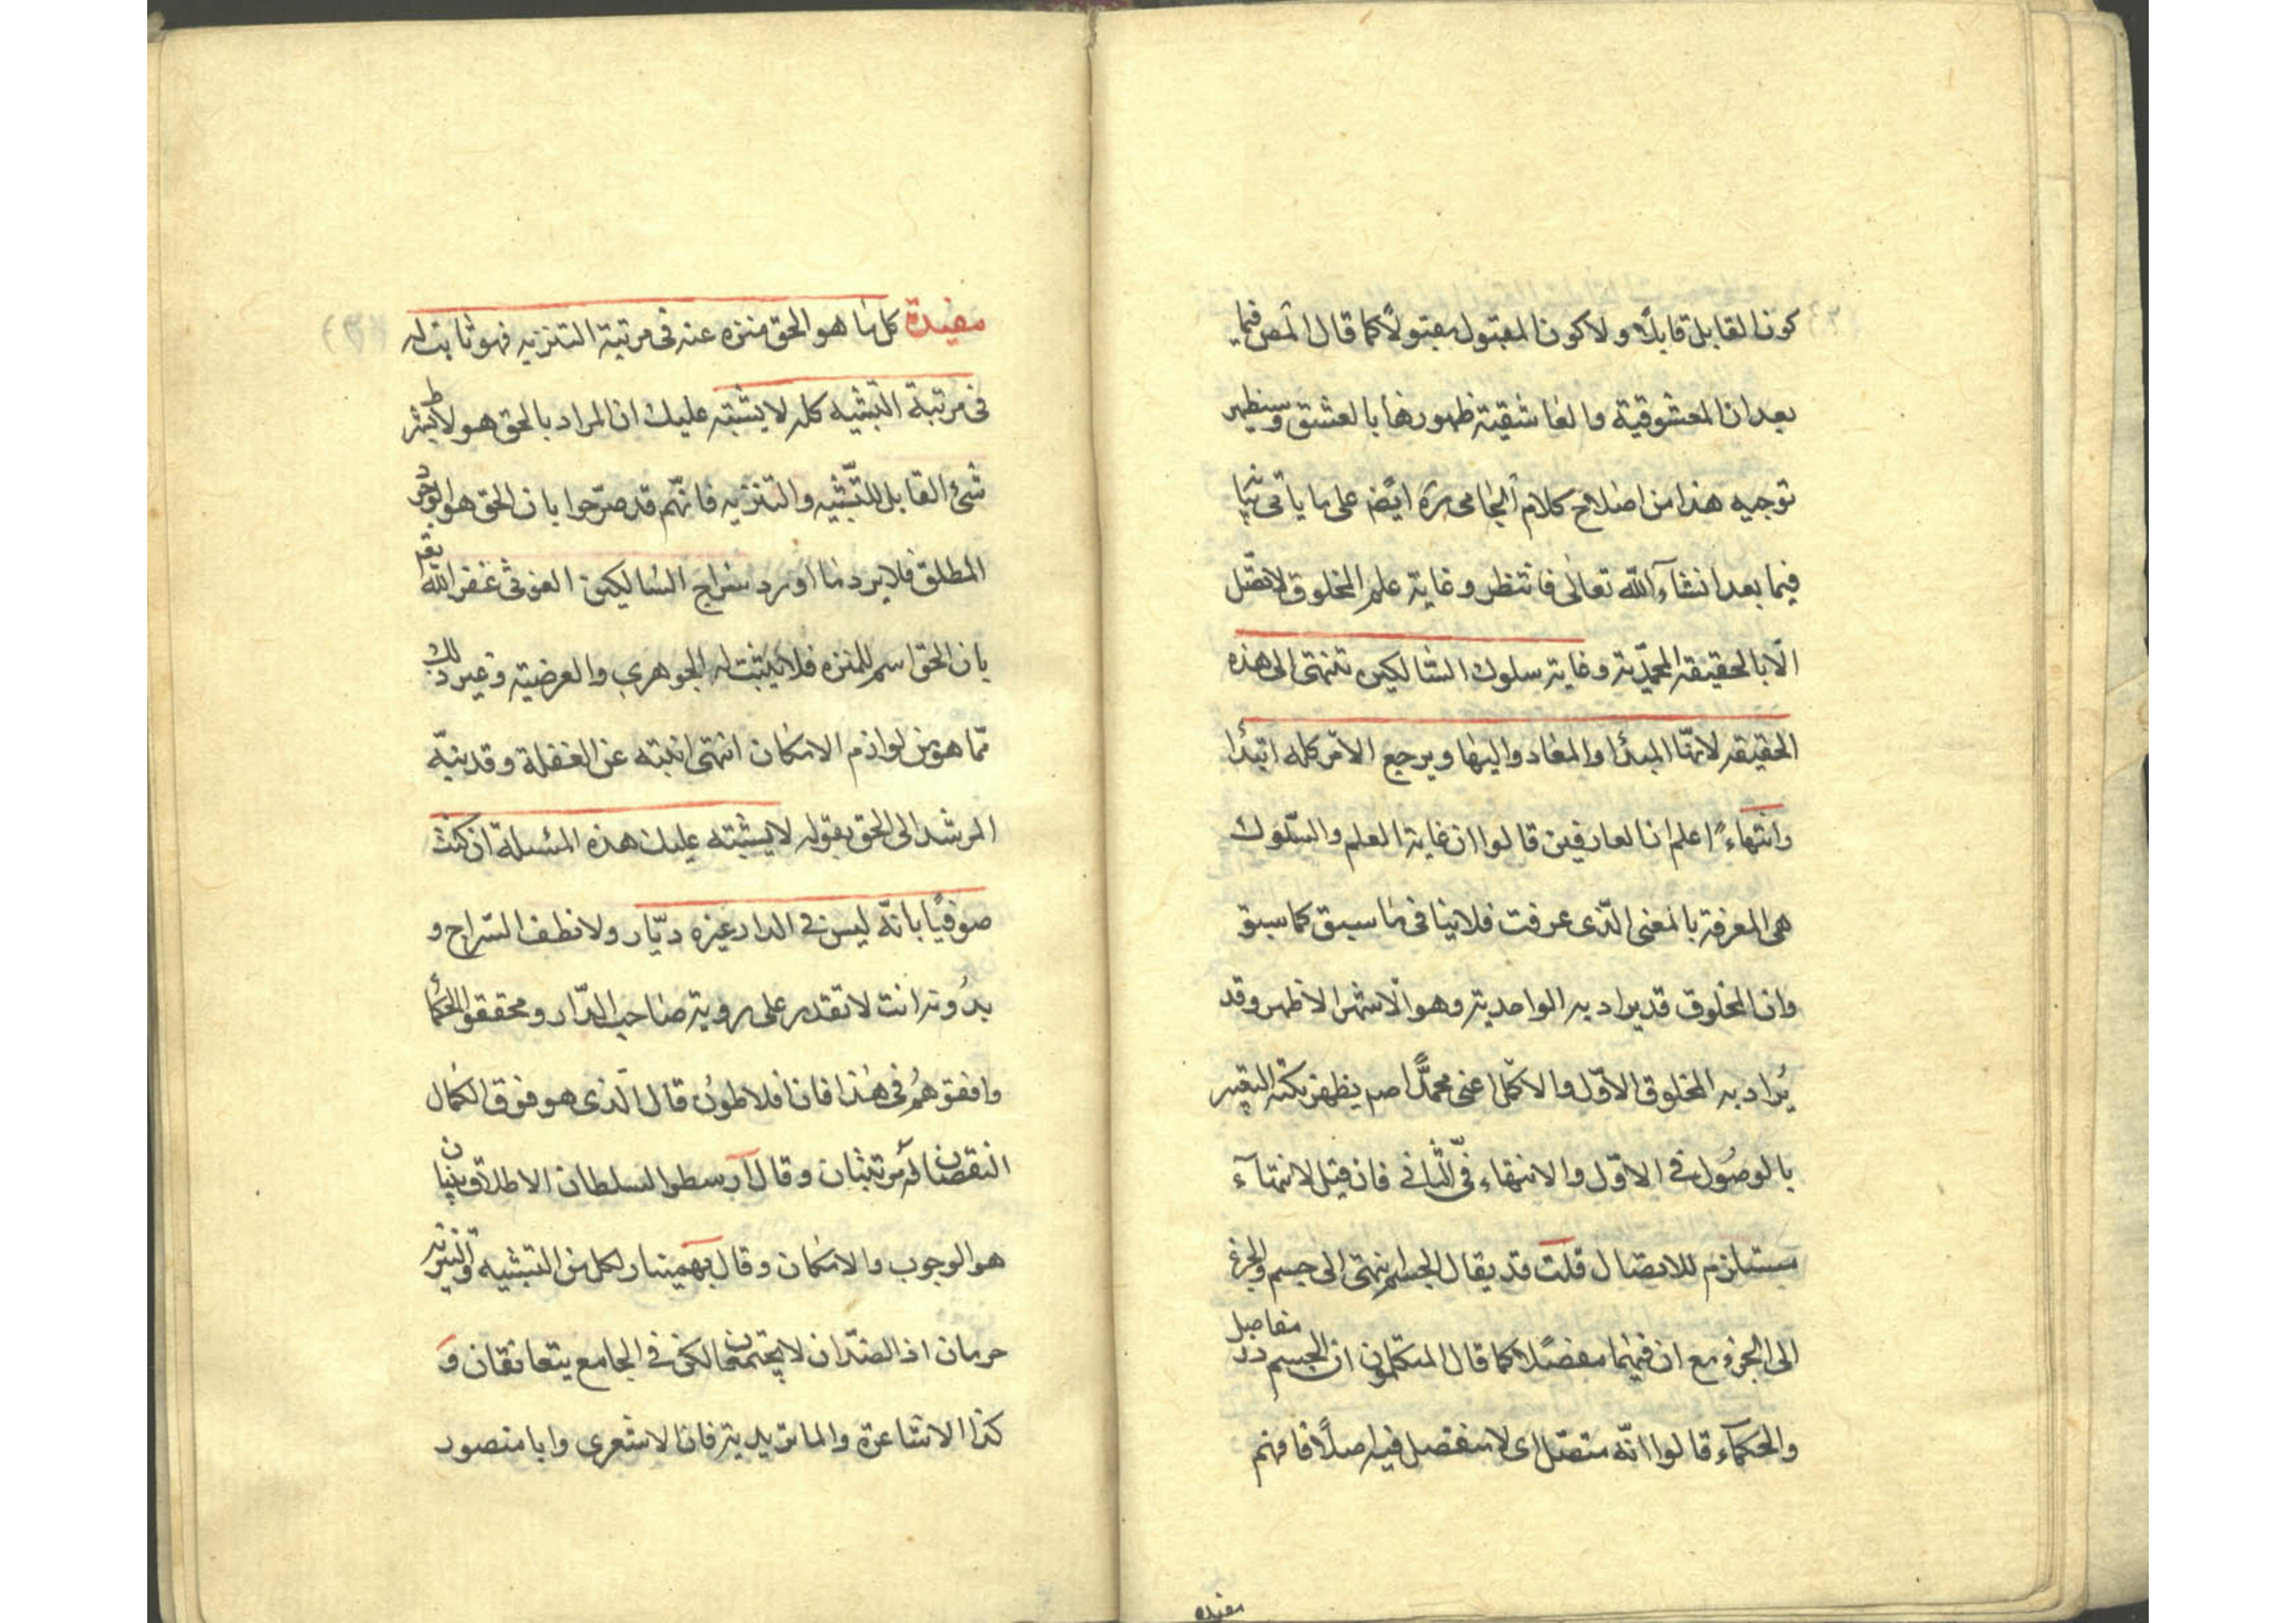 كون القابل قابلًا ولا كون المقبول مقبولًا كما قال المص فيما
بعد ان المعشوقية والعاشقية ظهورها بالعشق وسيظهر
توجيه هذا من اصلاح كلام الجامى ره ايضا على ما يأتى
فيما بعد انشآء الله تعالى فانتظر وغاية علم المخلوق لا تصل
الّا بالحقيقة المحمّدية وغاية سلوك السالكين تنتهى الى هذه
الحقيقة لانّها المبدأ والمعاد واليها ويرجع الامر كله ابتدا
وانتهاءً اعلم ان العارفين قالوا ان غاية العلم والسّلوك
هى المعرفة بالمعنى الّذى عرفت فلا ينافى ما سبق كما سبق
وان المخلوق قد يراد به الواحدية وهو الاشهر الاظهر وقد
يُراد به المخلوق الاوّل والاكمل اعنى محمّدًا صم يظهر نكتة التعبير
بالوصُول فى الاوّل والانتهاء فى الثّانى فان قيل لانتهآء
يستلزم للاتصال قلت قد يقال الجسم ينتهى الى جسم والجزء
الى الجزء مع ان فيهما مفصلا كما قال المتكلمون ان الجسم ذو مفاصل
والحكمآء قالوا انّه متصّل اى لا مفصل فيه اصلًا فافهم
مفيده
مفيدة كل ما هو الحق منزه عنه فى مرتبة التنزيه فهو ثابت له
فى مرتبة التشبيه كله لا يشتبه عليك ان المراد بالحق هو لا بشرط
شئ القابل للتّشبيه والتنزيه فانّهم قد صرّحوا بان الحق هو الوجود
المطلق فلا يرد ما اورد سراج السالكين الغوثى غفر الله
بان الحق اسم للمنزه فلا يثبت له الجوهرى والعرضية وغير ذلك
ممّا هو من لوازم الامكان انتهى انتبه عن الغفلة وقد نبّه
المرشد الى الحق بقوله لا يشتبه عليك هذه المسئلة ان كنت
صوفيًا بانّه ليس فى الدار غيره ديّار ولا تطف السّراج و
بدُونه انت لا تقدر على روية صاحب الدّار ومحققو الحكمأ
وافقوهُم فى هذا فان افلاطون قال الّذى هو فوق الكمال
النقصان له مرتبتان وقال آرسطو السلطان الاطلاق
هو الوجوب والامكان وقال بهمينار لكل من التشبيه والتنزيه
حرمان اذ الضدّان لا يجتمعان لكن فى الجامع يتعانقان و
كذا الاشاعرة والماتريدية فان الاشعرى وابا منصور